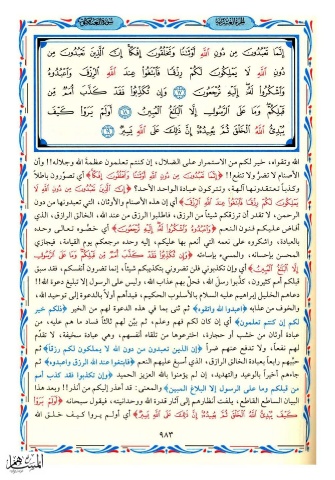 إِنَّمَا تَعْبُدُونَ مِن دُونِ اللَّهِ أَوْثَانًا وَتَخْلُقُونَ إِفْكًا إِنَّ الَّذِينَ تَعْبُدُونَ مِن
دُونِ اللَّهِ لَا يَمْلِكُونَ لَكُمْ رِزْقًا فَابْتَغُوا عِندَ اللَّهِ الرِّزْقَ وَاعْبُدُوهُ
وَاشْكُرُوا لَهُ إِلَيْهِ تُرْجَعُونَ ١٧ وَإِن تُكَذِّبُوا فَقَدْ كَذَّبَ أُمَمٌ مِّن
قَبْلِكُمْ وَمَا عَلَى الرَّسُولِ إِلَّا الْبَلَاغُ الْمُبِينُ ١٨ أَوَلَمْ يَرَوْا كَيْفَ
يُبْدِئُ اللَّهُ الْخَلْقَ ثُمَّ يُعِيدُهُ إِنَّ ذَلِكَ عَلَى اللَّهِ يَسِيرٌ ١٩
الله وتقواه، خير لكم من الاستمرار على الضلال، إن كنتم تعلمون عظمة الله وجلاله!! وأن
الأصنام لا تضر ولا تنفع!! ﴿إِنَّمَا تَعْبُدُونَ مِن دُونِ اللَّهِ أَوْثَانًا وَتَخْلُقُونَ إِفْكًا﴾ أي تصوّرون باطلاً
وكذباً تعتقدونها آلهة، وتتركون عبادة الواحد الأحد؟ ﴿إِنَّ الَّذِينَ تَعْبُدُونَ مِن دُونِ اللَّهِ لَا
يَمْلِكُونَ لَكُمْ رِزْقًا فَابْتَغُوا عِندَ اللَّهِ الرِّزْقَ﴾ أي إن هذه الأصنام والأوثان، التي تعبدونها من دون
الرحمن، لا تقدر أن ترزقكم شيئاً من الرزق، فاطلبوا الرزق من عند الله، الخالق الرازق، الذي
أفاض عليكم فنون النعم ﴿وَاعْبُدُوهُ وَاشْكُرُوا لَهُ إِلَيْهِ تُرْجَعُونَ﴾ أي خصّوه تعالى وحده
بالعبادة، واشكروه على نعمه التي أنعم بها عليكم، إليه وحده مرجعكم يوم القيامة، فيجازي
المحسن بإحسانه، والمسيء بإساءته ﴿وَإِن تُكَذِّبُوا فَقَدْ كَذَّبَ أُمَمٌ مِّن قَبْلِكُمْ وَمَا عَلَى الرَّسُولِ
إِلَّا الْبَلَاغُ الْمُبِينُ﴾ أي وإن تكذبوني فلن تضروني بتكذيبكم شيئاً، إنما تضرون أنفسكم، فقد سبق
قبلكم أمم كثيرون، كذّبوا رسل الله، فحلّ بهم عذاب الله، وليس على الرسول إلا تبليغ دعوة الله!!
دعاهم الخليل إبراهيم عليه السلام بالأسلوب الحكيم، فبدأهم أولاً بالدعوة إلى توحيد الله،
والخوف من عذابه ﴿اعبدوا الله واتقوه﴾ ثم ثنى بما في هذه الدعوة لهم من الخير ﴿ذلكم خير
لكم إن كنتم تعلمون﴾ أي إن كان لكم فهم وعلم، ثم بيّن لهم ثالثاً فساد ما هم عليه، من
عبادة أوثان من خشب أو حجارة، اخترعوها من تلقاء أنفسهم، وهي عبادة سخيفة، لا تقدّم
لهم نفعاً، ولا تدفع عنهم ضراً ﴿إن الذين تعبدون من دون الله لا يملكون لكم رزقاً﴾ ثم
حثهم رابعاً بعبادة الخالق الرازق، الذي أسبغ عليهم النعم ﴿فابتغوا عند الله الرزق واعبدوه﴾ ثم
جاءهم أخيراً بالوعيد والتهديد، إن لم يؤمنوا بالله العزيز الحميد ﴿وإن تكذبوا فقد كذب أمم
من قبلكم وما على الرسول إلا البلاغ المبين﴾ والمعنى: قد أعذر إليكم من أنذر!! وبعد هذا
البيان الساطع القاطع، يلفت أنظارهم إلى آثار قدرة الله ووحدانيته، فيقول سبحانه ﴿أَوَلَمْ يَرَوْا
كَيْفَ يُبْدِئُ اللَّهُ الْخَلْقَ ثُمَّ يُعِيدُهُ إِنَّ ذَلِكَ عَلَى اللَّهِ يَسِيرٌ﴾ أي أولم يروا كيف خلق الله
٩٨٣